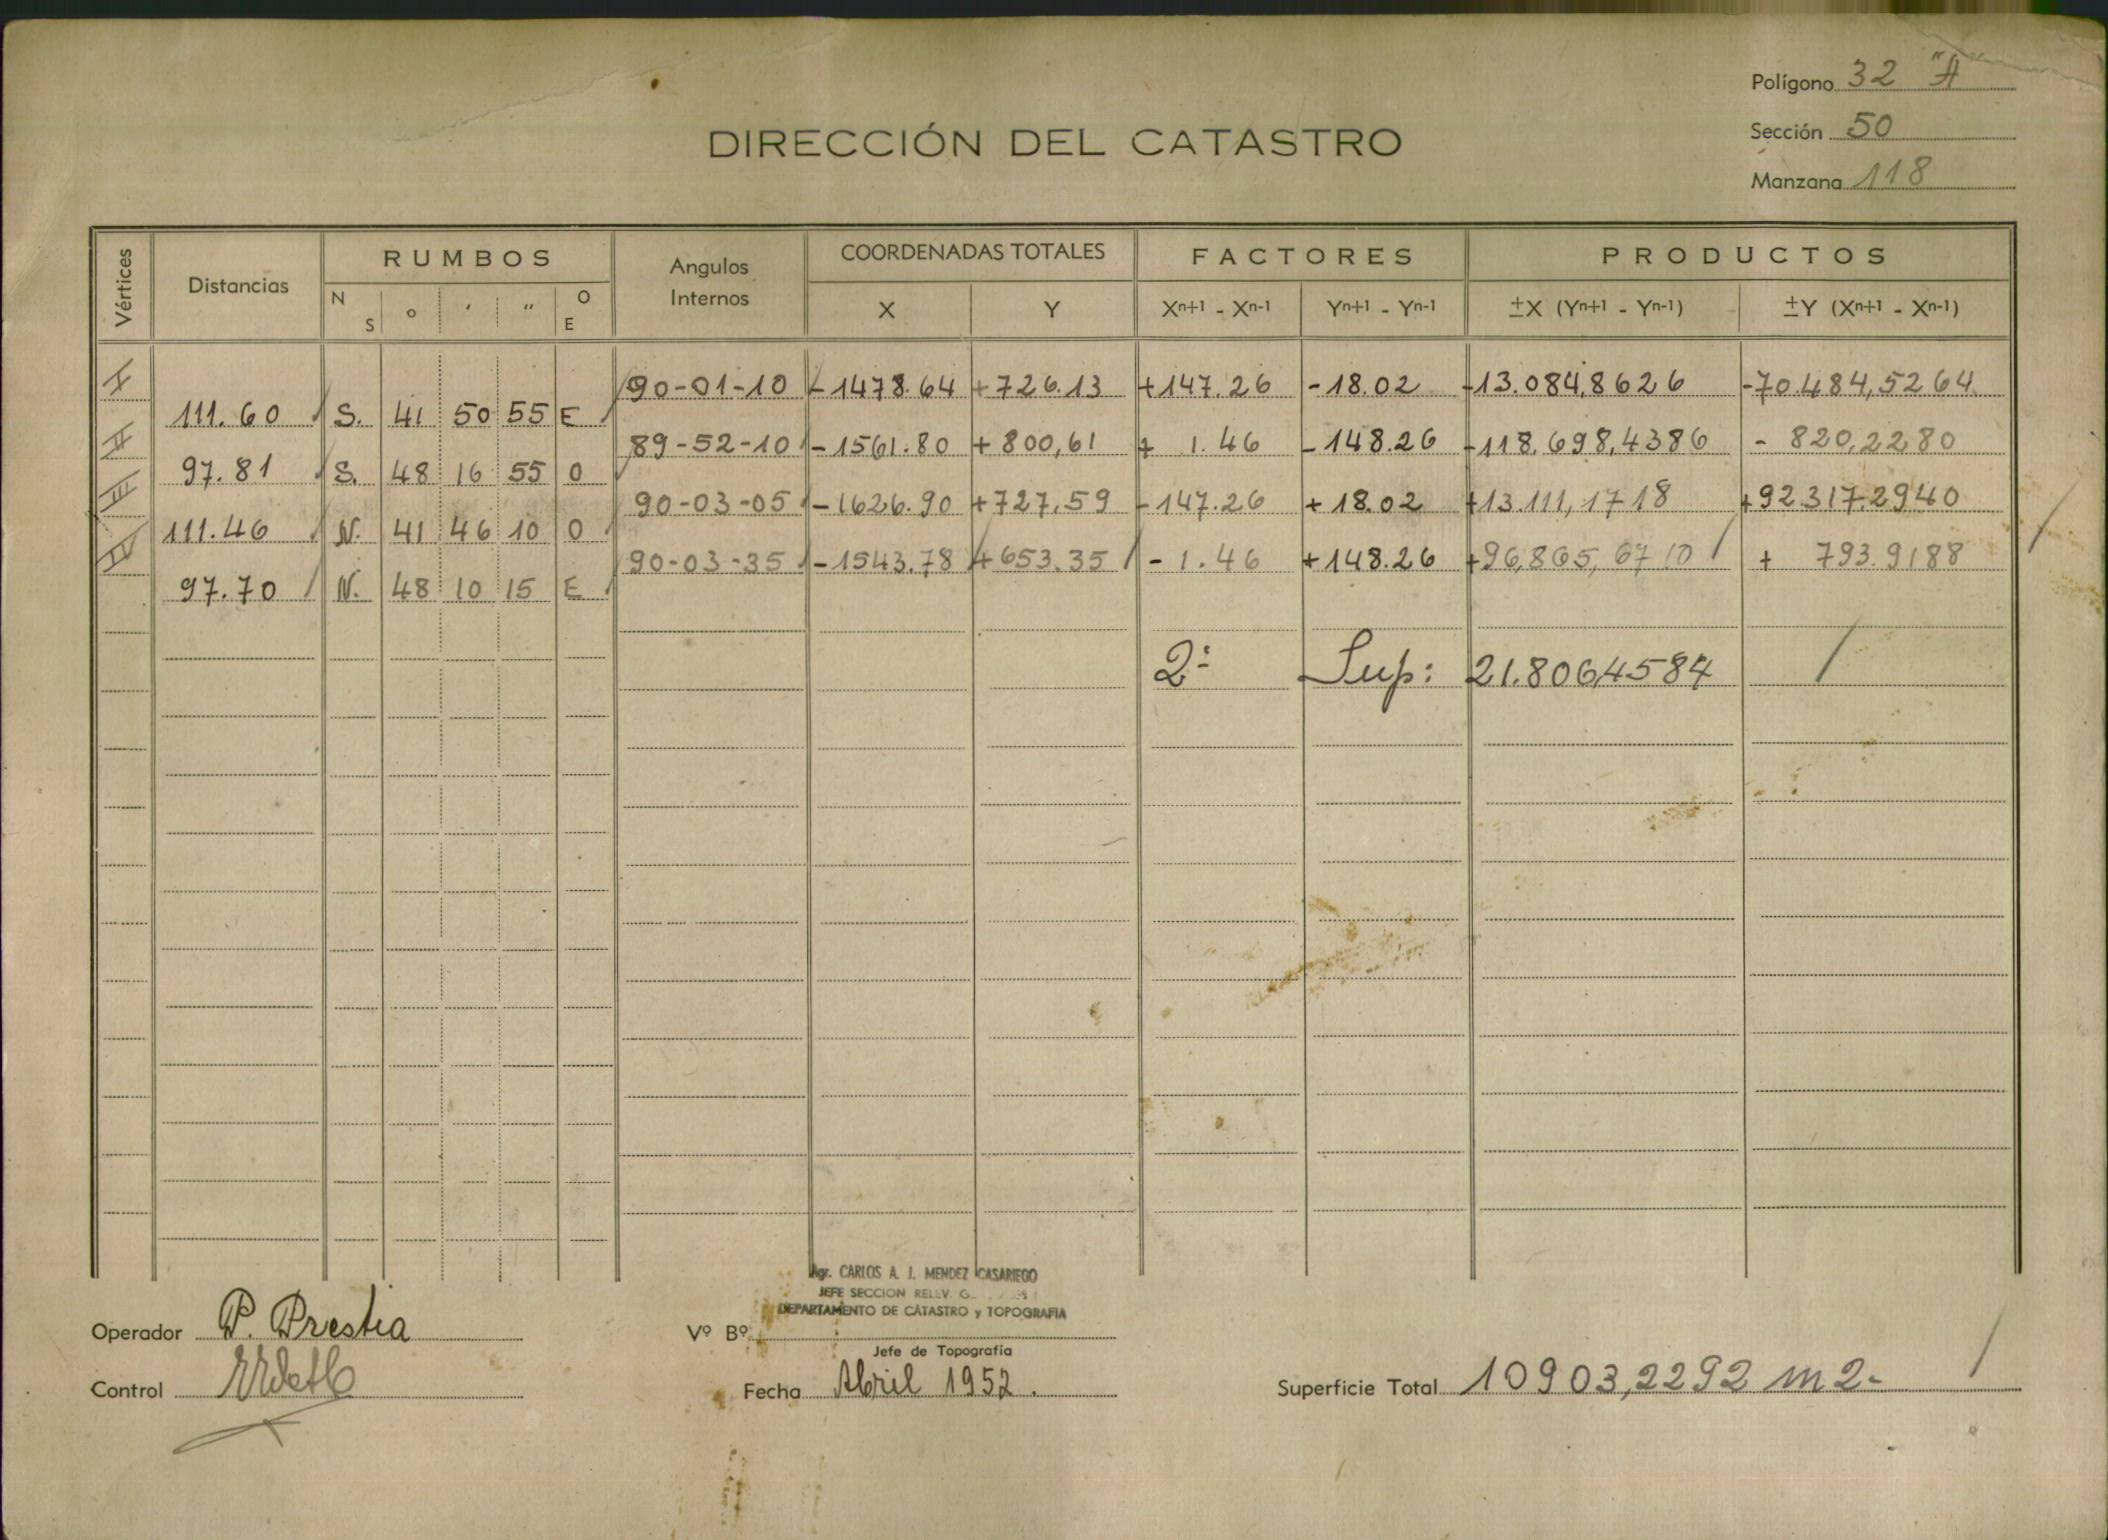 Polígono 32 "A
DIRECCIÓN DEL CATASTRO
Sección 50
Manzana 118
Vértices Distancias RUMBOS Angulos Internos COORDENADAS TOTALES FACTORES PRODUCTOS
N S ° ' " O E X Y Xn+1 - Xn-1 Yn+1 - Yn-1 ±X (Yn+1 - Yn-1) ±Y (Xn+1 - Xn-1)
I 90-01-10 -1478.64 +726.13 +147.26 -18.02 -13.084,8626 -70.484,5264
111.60 S. 41 50 55 E
II 89-52-10 -1561.80 +800,61 + 1.46 -148.26 -118.698,4386 - 820,2280
97.81 S. 48 16 55 O
III 90-03-05 -1626.90 +727.59 -147.26 +18.02 +13.111,1718 +92.317.2940
111.46 N. 41 46 10 O
IV 90-03-35 -1543.78 +653.35 -1.46 +148.26 +96,865,6710 + 793.9188
97.70 N. 48 10 15 E
2: Sup: 21.806,4584
Agr. CARLOS A. J. MENDEZ CASARIEGO
JEFE SECCION RELEV.
DEPARTAMENTO DE CATASTRO y TOPOGRAFIA
Operador P. Prestia Vº Bº
Jefe de Topografía
Control Fecha Abril 1952. Superficie Total 10903,2292 m2-